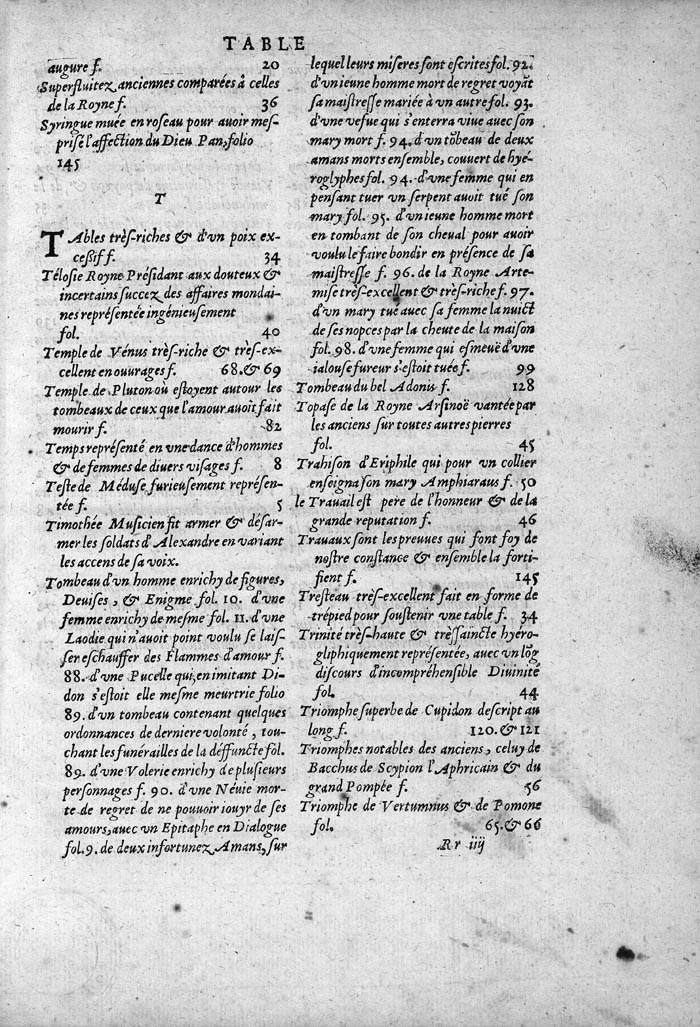 TABLE
augure f. 20
Superfluitez anciennes comparées à celles
de la Royne f. 36
Syringue muée en roseau pour auoir mes-
prisé l'affection du Dieu Pan, folio
145
T
TAbles très-riches & d'vn poix ex-
cessif f. 34
Télosie Royne Présidant aux douteux &
incertains succez des affaires mondai-
nes représentée ingénieusement
fol. 40
Temple de Vénus très-riche & très-ex-
cellent en ouurages f. 68. & 69
Temple de Pluton où estoyent autour les
tombeaux de ceux que l'amour auoit fait
mourir f. 82
Temps représenté en vne dance d'hommes
& de femmes de diuers visages f. 8
Teste de Méduse furieusement représen-
tée f. 5
Timothée Musicien fit armer & désar-
mer les soldats d'Alexandre en variant
les accens de sa voix.
Tombeau d'vn homme enrichy de figures,
Deuises, & Enigme fol. 10. d'vne
femme enrichy de mesme fol. 11. d'vne
Laodie qui n'auoit point voulu se lais-
ser eschauffer des Flammes d'amour f.
88. d'vne Pucelle qui, en imitant Di-
don s'estoit elle mesme meurtrie folio
89. d'vn tombeau contenant quelques
ordonnances de derniere volonté, tou-
chant les funérailles de la déffuncte fol.
89. d'vne Volerie enrichy de plusieurs
personnages f. 90. d'vne Néuie mor-
te de regret de ne pouuoir iouyr de ses
amours, auec vn Epitaphe en Dialogue
fol. 9. de deux infortunez Amans, sur
lequel leurs miseres sont escrites fol. 92.
d'vn ieune homme mort de regret voyãt
sa maistresse mariée à vn autre fol. 93.
d'vne vefue qui s'enterra viue auec son
mary mort f. 94. d'vn tõbeau de deux
amans morts ensemble, couuert de hyé-
roglyphes fol. 94. d'vne femme qui en
pensant tuer vn serpent auoit tué son
mary fol. 95. d'vn ieune homme mort
en tombant de son cheual pour auoir
voulu le faire bondir en présence de sa
maistresse f. 96. de la Royne Arte-
mise très-excellent & très-riche f. 97.
d'vn mary tué auec sa femme la nuict
de ses nopces par la cheute de la maison
fol. 98. d'vne femme qui esmeuë d'vne
ialouse fureur s'estoit tuée f. 99
Tombeau du bel Adonis f. 128
Topase de la Royne Arsinoë vantée par
les anciens sur toutes autres pierres
fol. 45
Trahison d'Eriphile qui pour vn collier
enseigna son mary Amphiaraus f. 50
le Trauail est pere de l'honneur & de la
grande reputation f. 46
Trauaux sont les preuues qui font foy de
nostre constance & ensemble la forti-
fient f. 145
Tresteau très-excellent fait en forme de
trépied pour soustenir vne table f. 34
Trinité très-haute & tressaincte hyéro-
gliphiquement représentée, auec vn lõg
discours d'incompréhensible Diuinité
fol. 44
Triomphe superbe de Cupidon descript au
long f. 120. & 121
Triomphes notables des anciens, celuy de
Bacchus de Scypion l'Aphricain & du
grand Pompée f. 56
Triomphe de Vertumnus & de Pomone
fol. 65. & 66
Rr iiij